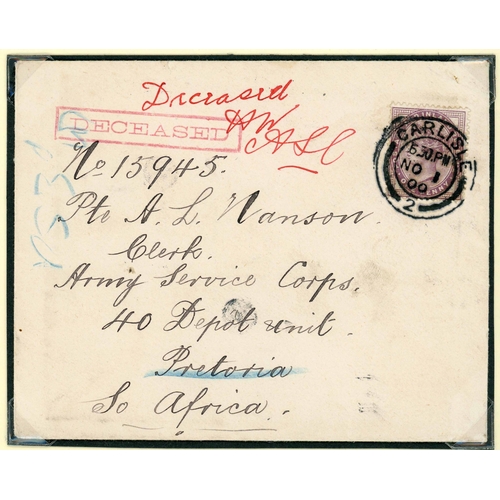 Deceased
DECEASED
HW
ASC
No 15945.
Pte A. L. Hanson.
Clerk.
Army Service Corps.
40 Depot unit.
Pretoria
So Africa.
CARLISLE
5-30.PM
NO 1
00
2